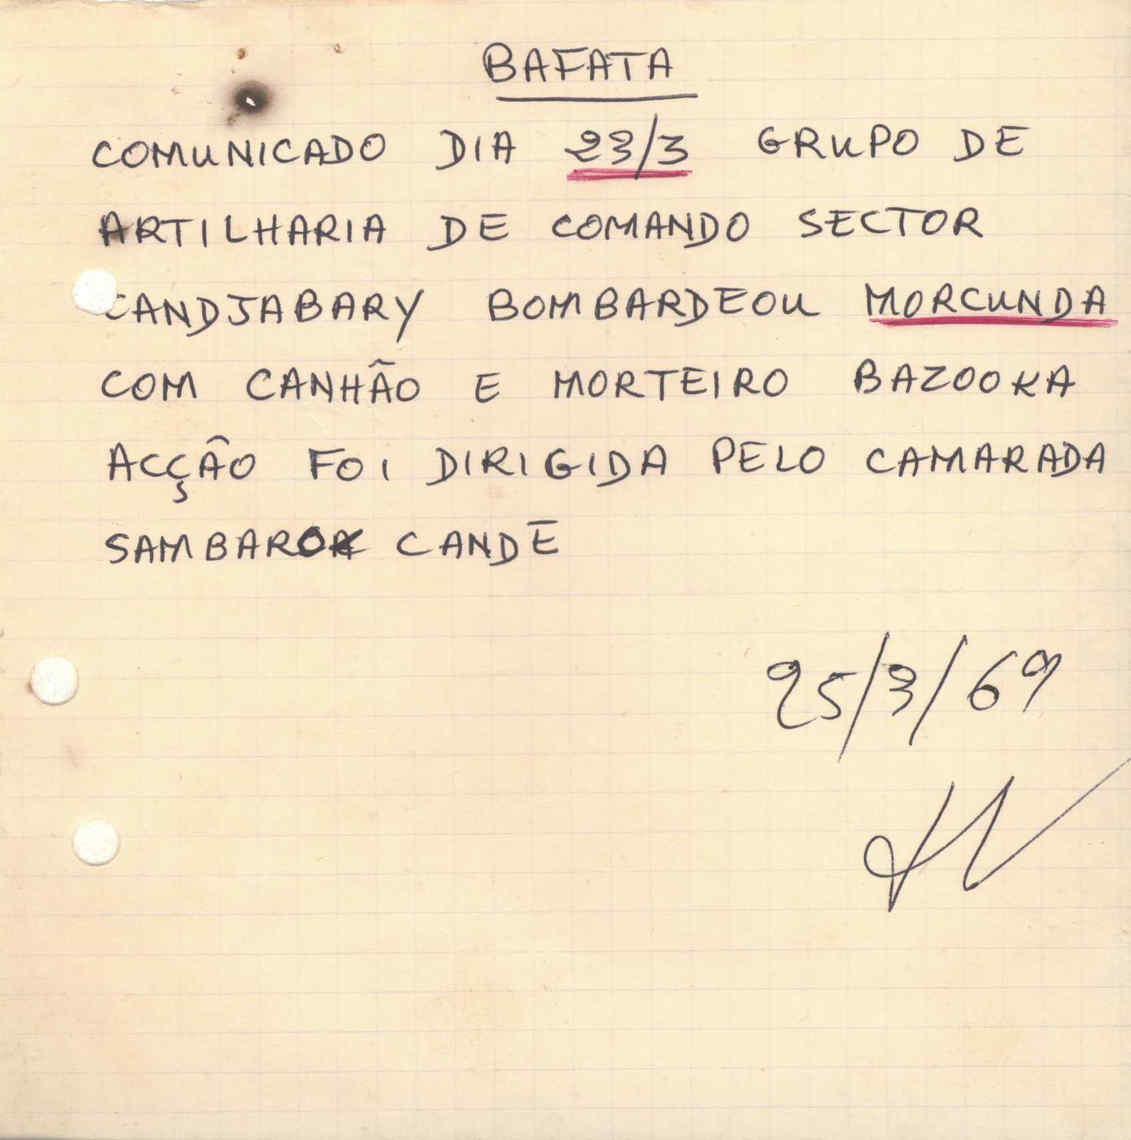 BAFATA
COMUNICADO DIA 23/3 GRUPO DE
ARTILHARIA DE COMANDO SECTOR
CANDJABARY BOMBARDEOU MORCUNDA
COM CANHÃO E MORTEIRO BAZOOKA
ACÇÂO FOI DIRIGIDA PELO CAMARADA
CANDE
25/3/69